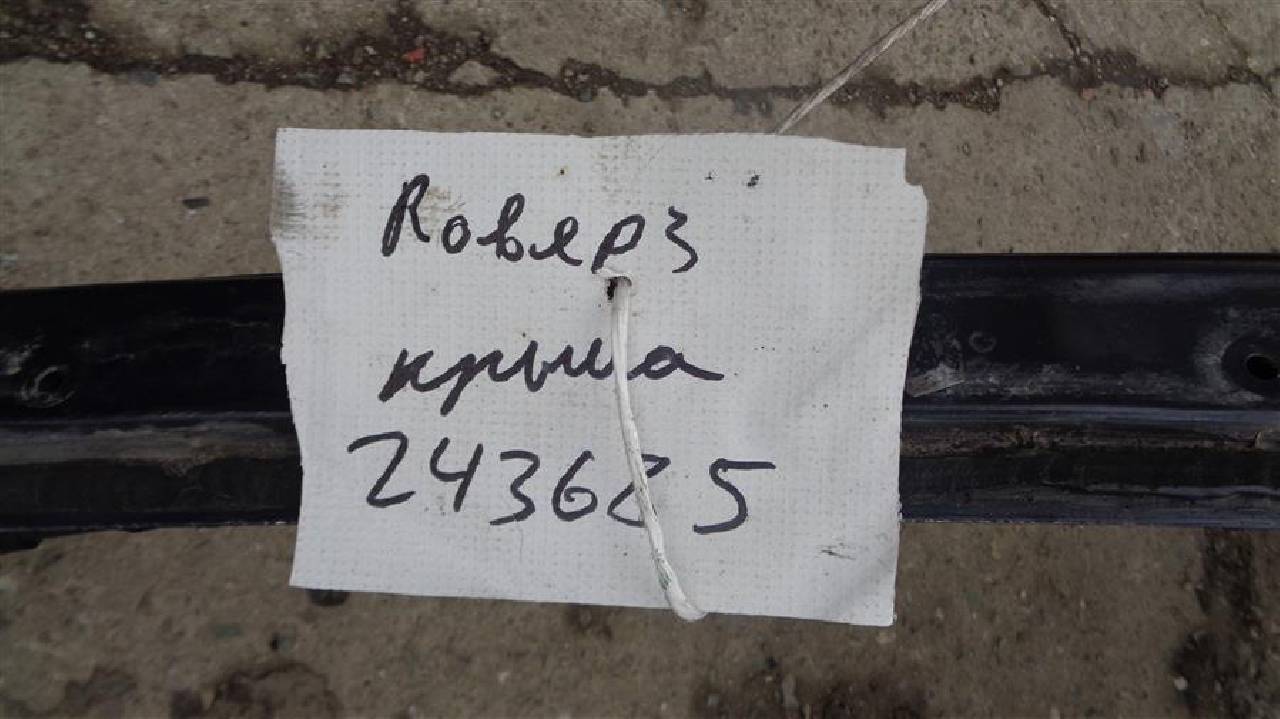 Ковер 3
крыша
243685